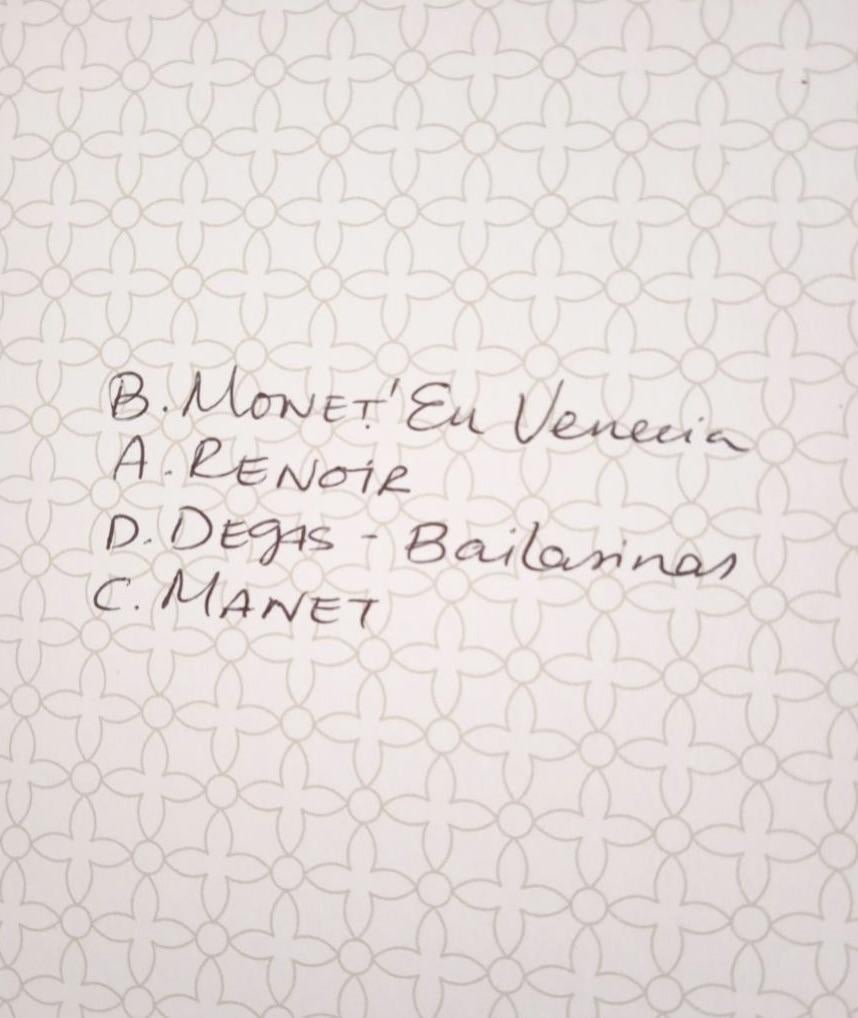 B. MONET 'En Venecia
A. RENOIR
D. DEGAS - Bailarinas
C. MANET